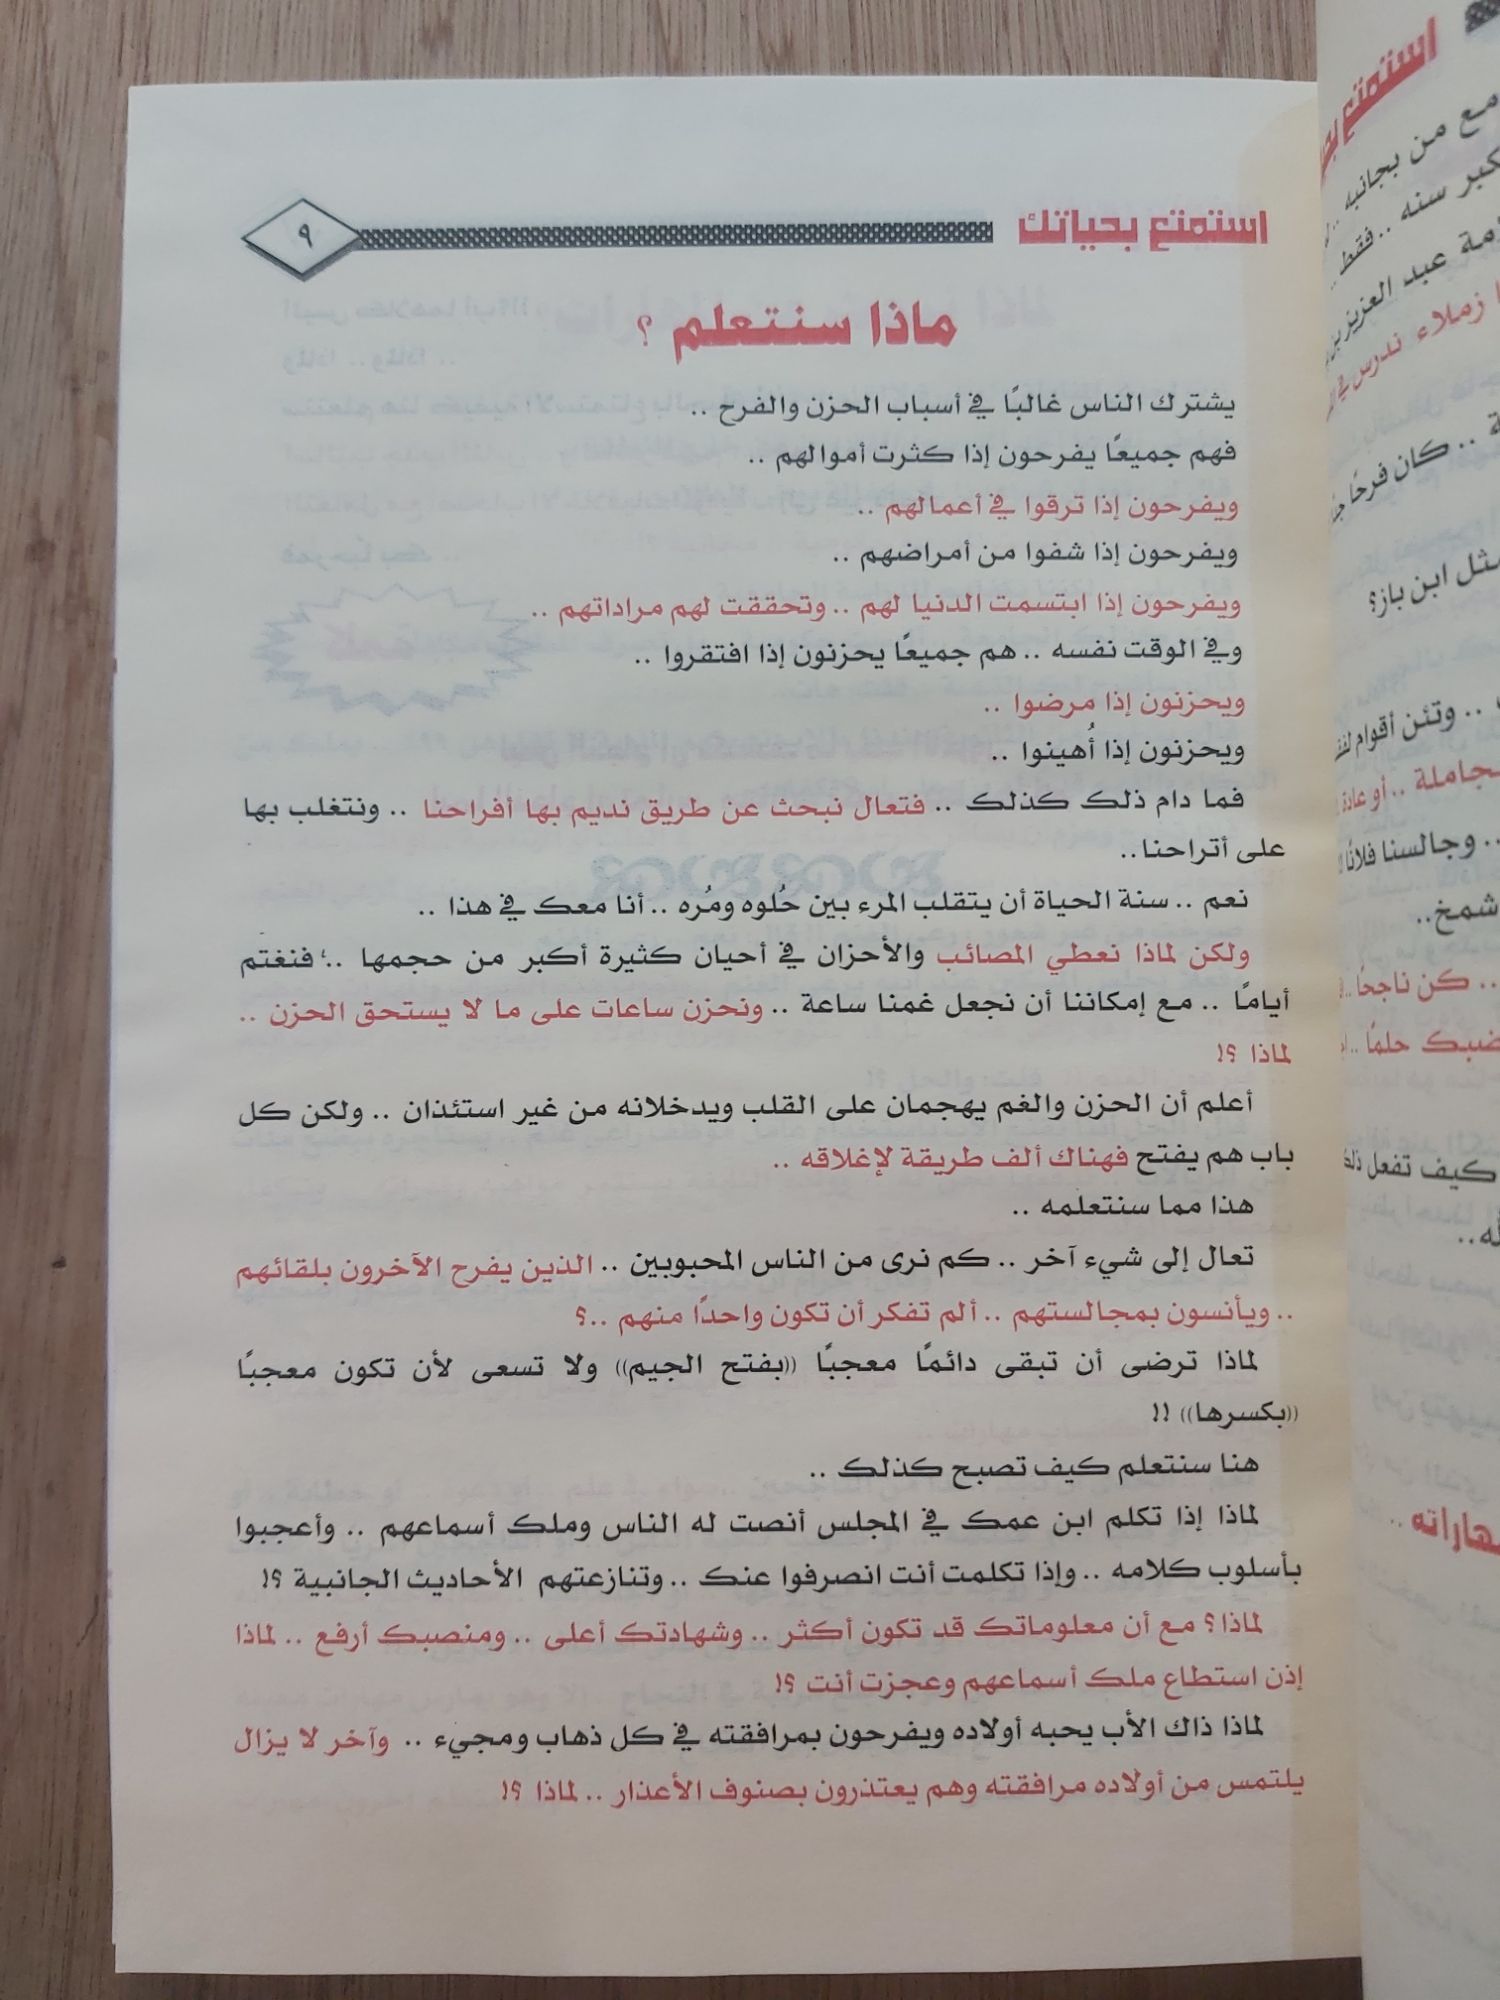 استمتع بحياتك
٩
ماذا سنتعلم ؟
يشترك الناس غالبًا في أسباب الحزن والفرح ..
فهم جميعًا يفرحون إذا كثرت أموالهم ..
ويفرحون إذا ترقوا في أعمالهم ..
ويفرحون إذا شفوا من أمراضهم ..
ويفرحون إذا ابتسمت الدنيا لهم .. وتحققت لهم مراداتهم ..
وفي الوقت نفسه .. هم جميعًا يحزنون إذا افتقروا ..
ويحزنون إذا مرضوا ..
ويحزنون إذا أُهينوا ..
فما دام ذلك كذلك .. فتعال نبحث عن طريق نديم بها أفراحنا .. ونتغلب بها
على أتراحنا..
نعم .. سنة الحياة أن يتقلب المرء بين حُلوه ومُره .. أنا معك في هذا ..
ولكن لماذا نعطي المصائب والأحزان في أحيان كثيرة أكبر من حجمها ..؛ فنغتم
أيامًا .. مع إمكاننا أن نجعل غمنا ساعة .. ونحزن ساعات على ما لا يستحق الحزن ..
لماذا ؟!
أعلم أن الحزن والغم يهجمان على القلب ويدخلانه من غير استئذان .. ولكن كل
باب هم يفتح فهناك ألف طريقة لإغلاقه ..
هذا مما سنتعلمه ..
تعال إلى شيء آخر .. كم نرى من الناس المحبوبين .. الذين يفرح الآخرون بلقائهم
.. ويأنسون بمجالستهم .. ألم تفكر أن تكون واحدًا منهم ..؟
لماذا ترضى أن تبقى دائمًا معجبًا ((بفتح الجيم)) ولا تسعى لأن تكون معجبًا
((بكسرها)) !!
هنا سنتعلم كيف تصبح كذلك ..
لماذا إذا تكلم ابن عمك في المجلس أنصت له الناس وملك أسماعهم .. وأعجبوا
بأسلوب كلامه .. وإذا تكلمت أنت انصرفوا عنك .. وتنازعتهم الأحاديث الجانبية ؟!
لماذا ؟ مع أن معلوماتك قد تكون أكثر .. وشهادتك أعلى .. ومنصبك أرفع .. لماذا
إذن استطاع ملك أسماعهم وعجزت أنت ؟!
لماذا ذاك الأب يحبه أولاده ويفرحون بمرافقته في كل ذهاب ومجيء .. وآخر لا يزال
يلتمس من أولاده مرافقته وهم يعتذرون بصنوف الأعذار .. لماذا ؟!
استمتع
مع من بجانبه ..
كبر سنه .. فقط ..
عبد العزيز بن
زملاء ندرس في
.. كان فرحًا
مثل ابن باز؟
.. وتئن أقوام
.. أو عادة
.. وجالسنا فلانًا
شمخ..
.. كن ناجحًا ..
حلمًا ..
كيف تفعل